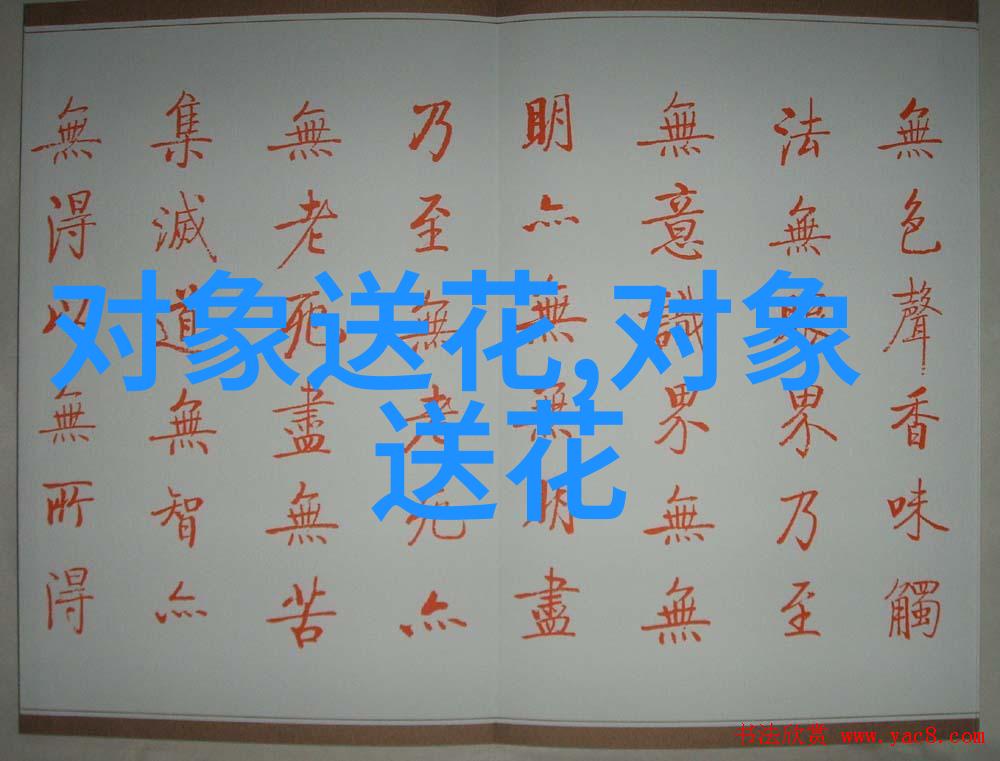 無色聲香味觸
法無眼界乃至
無意識界無無
明亦無無明盡
乃至無老死亦
無老死盡無苦
集滅道無智亦
無得以無所得
对象送花,对象
送花
书法欣赏 www.yac8.com